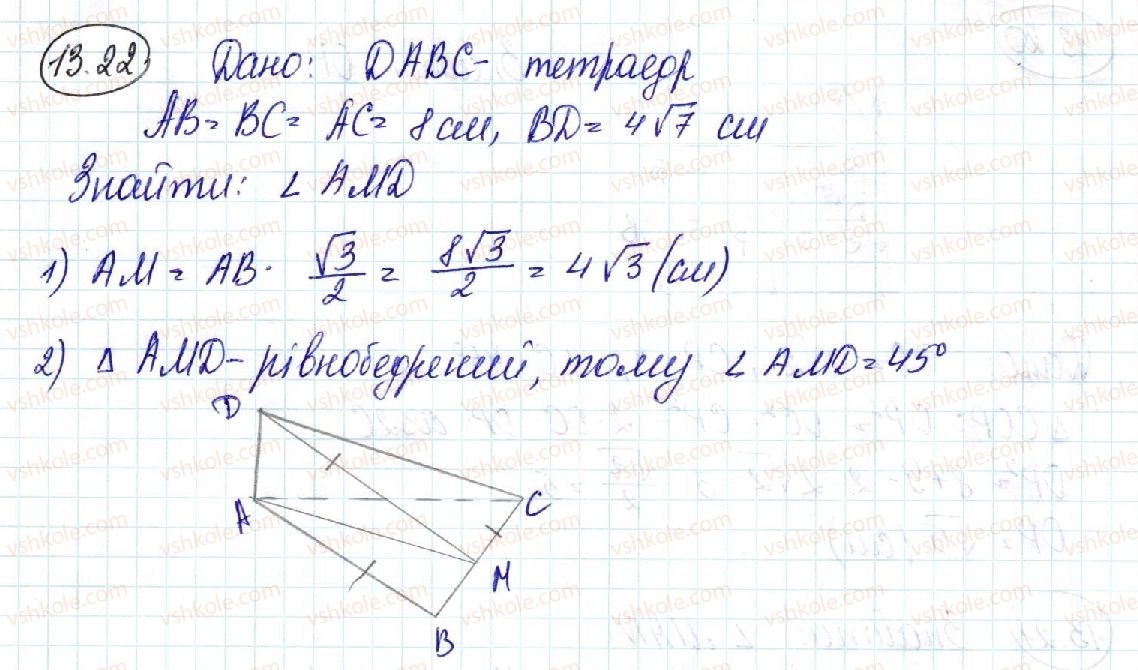 13.22 Дано: DABC - тетраедр
AB = BC = AC = 8 см, BD = 4√7 см
Знайти: ∠ AMD
1) AM = AB · √3/2 = 8√3/2 = 4√3 (см)
2) Δ AMD - рівнобедрений, тому ∠ AMD = 45°
D
A
C
M
B
vshkole.com